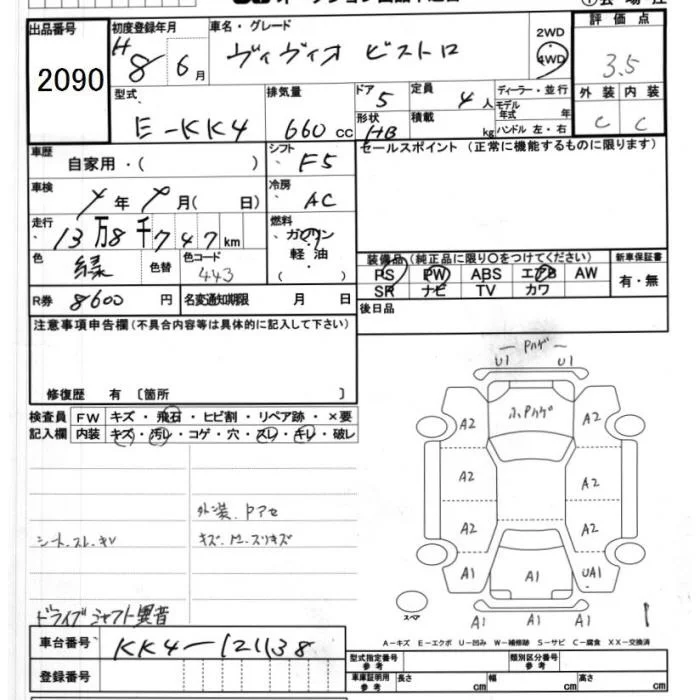 出品番号 初度登録年月 車名・グレード 2WD 評価点
2090 H 8 6月 ヴィヴィオ ビストロ 4WD 3.5
型式 排気量 ドア 定員 ディーラー・並行 外装 内装
E-KK4 660cc 5 4人 モデル年式 年 C C
形状 HB 積載 kg ハンドル 左・右
車歴 シフト セールスポイント (正常に機能するものに限ります)
自家用・( ) F5
車検 冷房
年 月( 日) AC
走行 燃料
13万8千747km ガソリン
軽油
・( )
色 色替 色コード 装備品(純正品に限り○をつけてください) 新車保証書
緑 443 PS PW ABS エアB AW 有・無
SR ナビ TV カワ
R券 8600円 名変通知期限 月 日 後日品
注意事項申告欄(不具合内容等は具体的に記入して下さい)
修復歴 有 〔箇所 〕
検査員 FW キズ・飛石・ヒビ割・リペア跡・×要
記入欄 内装 キズ・汚レ・コゲ・穴・スレ・キレ・破レ
Pハゲ
U1 U1
A2 Pハゲ A2
A2 A2
A2 A2
A1 A1 UA1
A1 A1 A1
スペア
外装、Pアセ
ドライブシャフト異音
A-キズ E-エクボ U-凹み W-補修跡 S-サビ C-腐食 XX-交換済
車台番号 KK4-121138
登録番号
型式指定番号 参考 類別区分番号 参考
車庫証明用 参考 長さ cm 幅 cm 高さ cm